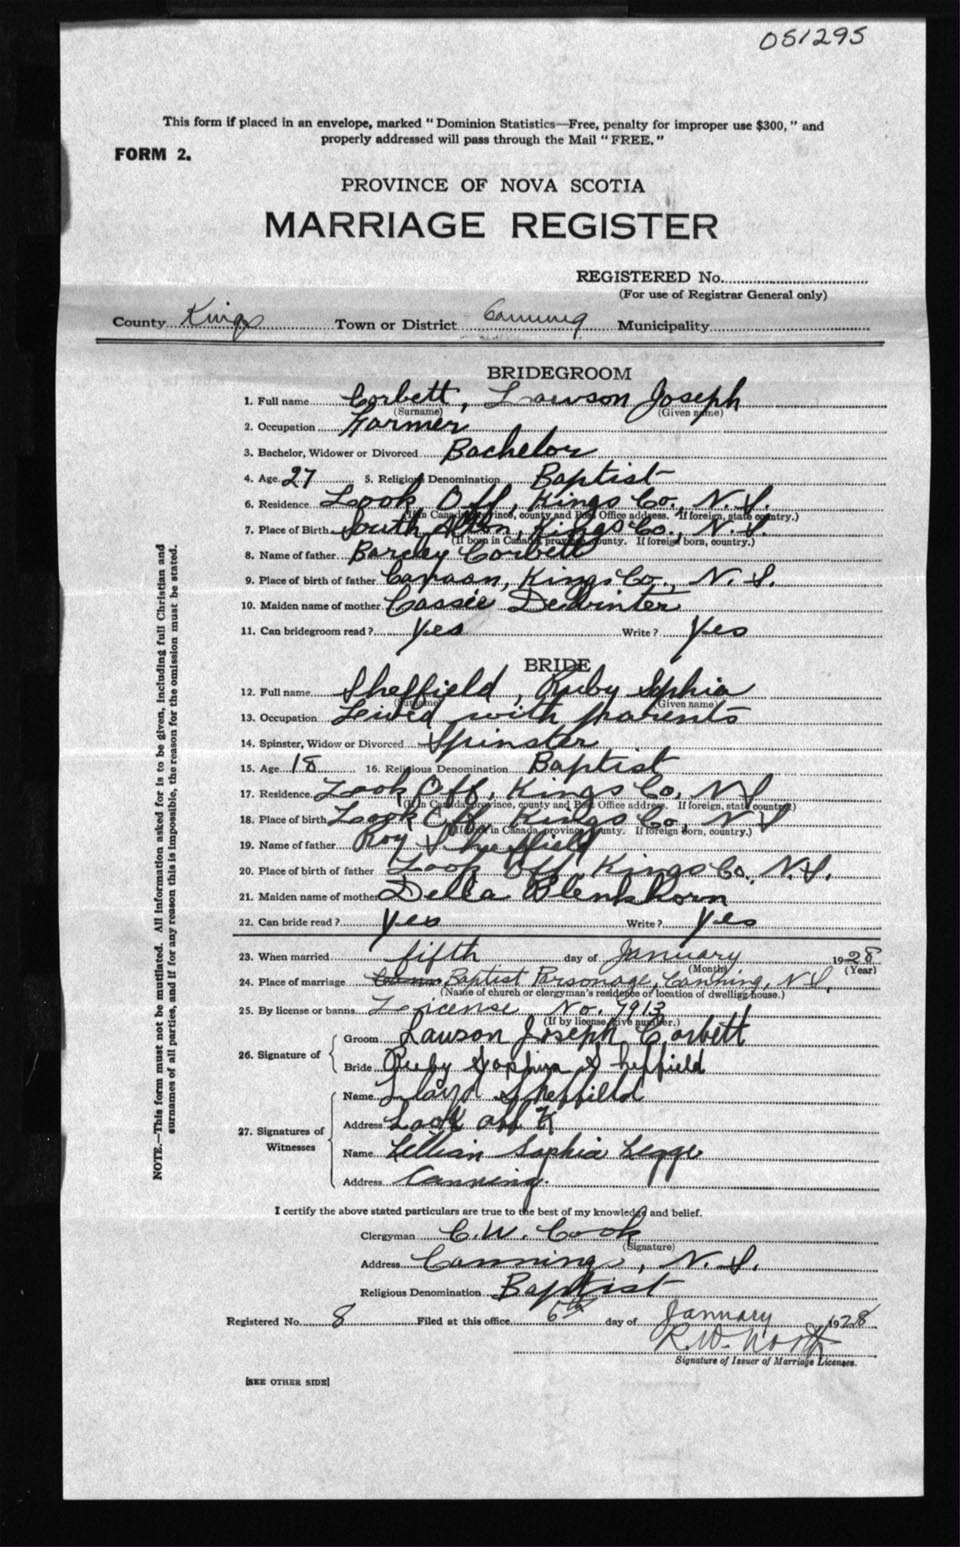 051295
This form if placed in an envelope, marked "Dominion Statistics—Free, penalty for improper use $300," and
properly addressed will pass through the Mail "FREE."
FORM 2.
PROVINCE OF NOVA SCOTIA
MARRIAGE REGISTER
REGISTERED No.
(For use of Registrar General only)
County Kings Town or District Canning Municipality
BRIDEGROOM
1. Full name Corbett, Lawson Joseph
(Surname) (Given name)
2. Occupation Farmer
3. Bachelor, Widower or Divorced Bachelor
4. Age 27 5. Religious Denomination Baptist
6. Residence Look Off, Kings Co., N.S.
(If in Canada, province, county and Post Office address. If foreign, state country.)
7. Place of Birth South Alton, Kings Co., N.S.
(If born in Canada, province, county. If foreign born, country.)
8. Name of father Barclay Corbett
9. Place of birth of father Canaan, Kings Co., N.S.
10. Maiden name of mother Cassie Dewinter
11. Can bridegroom read? Yes Write? Yes
BRIDE
12. Full name Sheffield, Ruby Sophia
(Surname) (Given name)
13. Occupation Lived with parents
14. Spinster, Widow or Divorced Spinster
15. Age 18 16. Religious Denomination Baptist
17. Residence Look Off, Kings Co., N.S
(If in Canada, province, county and Post Office address. If foreign, state country)
18. Place of birth Look Off, Kings Co., N.S
(If born in Canada, province, county. If foreign born, country.)
19. Name of father Roy Sheffield
20. Place of birth of father Look Off, Kings Co., N.S.
21. Maiden name of mother Della Blenkhorn
22. Can bride read? Yes Write? Yes
23. When married fifth day of January 1928
(Month) (Year)
24. Place of marriage Baptist Parsonage, Canning, N.S.
(Name of church or clergyman's residence or location of dwelling house.)
25. By license or banns License No. 7913
(If by license, give number.)
26. Signature of
Groom Lawson Joseph Corbett
Bride Ruby Sophia Sheffield
27. Signatures of Witnesses
Name Lloyd Sheffield
Address Look off K
Name Lillian Sophia Legge
Address Canning.
I certify the above stated particulars are true to the best of my knowledge and belief.
Clergyman C.W. Cook
(Signature)
Address Canning, N.S.
Religious Denomination Baptist
Registered No. 8 Filed at this office 6th day of January 1928
R.W. North
Signature of Issuer of Marriage Licenses.
[SEE OTHER SIDE]
NOTE.—This form must not be mutilated. All information asked for is to be given, including full Christian and
surnames of all parties, and if for any reason this is impossible, the reason for the omission must be stated.